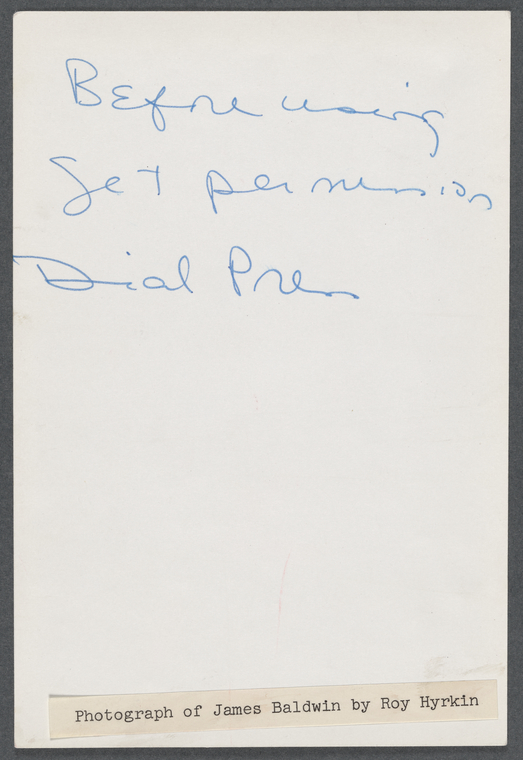 Before using
get permission
Dial Press
Photograph of James Baldwin by Roy Hyrkin